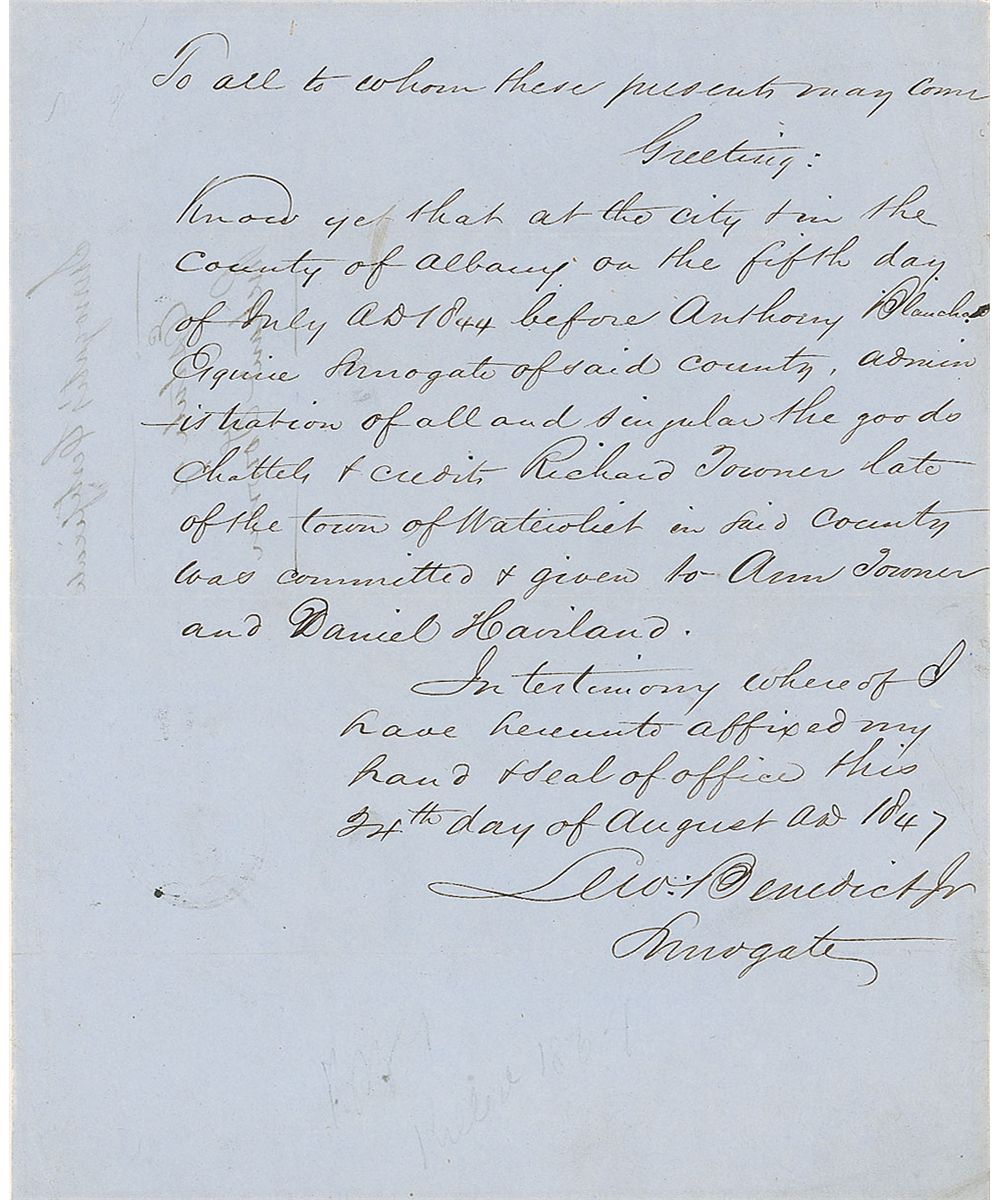 To all to whom these presents may come
Greeting:
Know ye that at the city & in the
County of Albany on the fifth day
of July AD 1844 before Anthony Blanchard
Esquire Surrogate of said county, admin
-istration of all and singular the goods
chattels & credits Richard Towner late
of the town of Watervliet in said County
was committed & given to Ann Towner
and Daniel Haviland.
In testimony whereof I
have hereunto affixed my
hand & seal of office this
24th day of August AD 1847
Lew: Benedict Jr
Surrogate